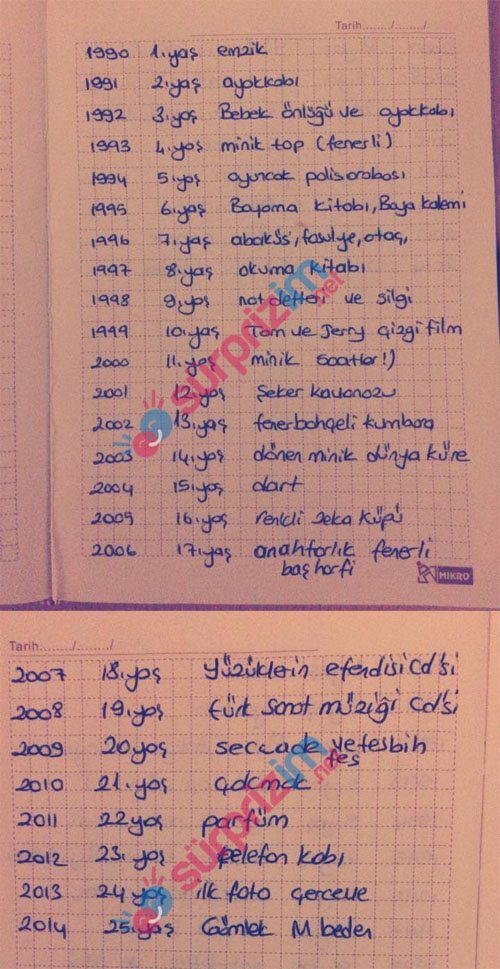 Tarih......../......../
1990 1.yaş emzik
1991 2.yaş ayakkabı
1992 3.yaş Bebek önlüğü ve ayakkabı
1993 4.yaş minik top (fenerli)
1994 5.yaş oyuncak polis arabası
1995 6.yaş Boyama kitabı, Boya kalemi
1996 7.yaş abaküs, fasulye, otaç,
1997 8.yaş okuma kitabı
1998 9.yaş not defteri ve silgi
1999 10.yaş Tom ve Jerry çizgi film
2000 11.yaş minik saatler!)
2001 12.yaş Şeker kavanozu
2002 13.yaş fenerbahçeli kumbara
2003 14.yaş dönen minik dünya küre
2004 15.yaş dart
2005 16.yaş renkli zeka küpü
2006 17.yaş anahtarlık fenerli
baş harfi
MIKRO
sürprizim.net
Tarih......../......../
2007 18.yaş Yüzüklerin efendisi cd'si
2008 19.yaş türk sanat müziği cd'si
2009 20 yaş seccade ve tesbih
fes
2010 21.yaş çakmak
2011 22 yaş parfüm
2012 23.yaş telefon kabı
2013 24 yaş ilk foto çerceve
2014 25.yaş Gömlek M beden
sürprizim.net